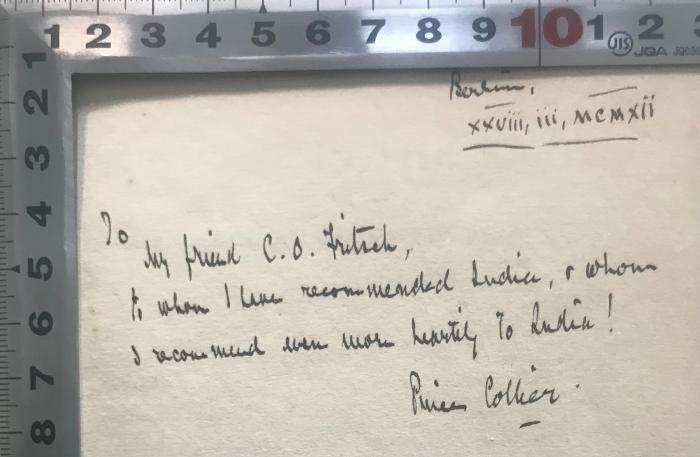 1 2 3 4 5 6 7 8 9 10 1 2
JIS JQA JQ0
1
2
3
4
5
6
7
8
Berlin,
xxviii, iii, MCMXII
To
my friend C. O. Fritsch,
to whom I have recommended India, & whom
I recommend even more heartily to India!
Price Collier.